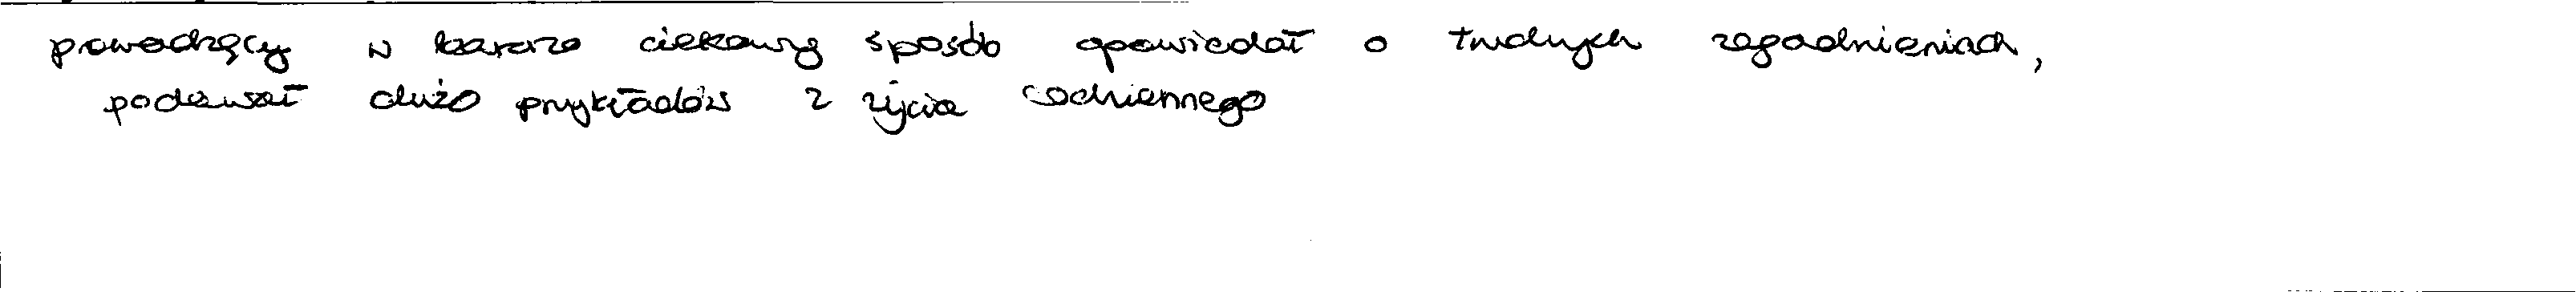 prowadzący w bardzo ciekawy sposób opowiadał o trudnych zagadnieniach,
podawał dużo przykładów z życia codziennego